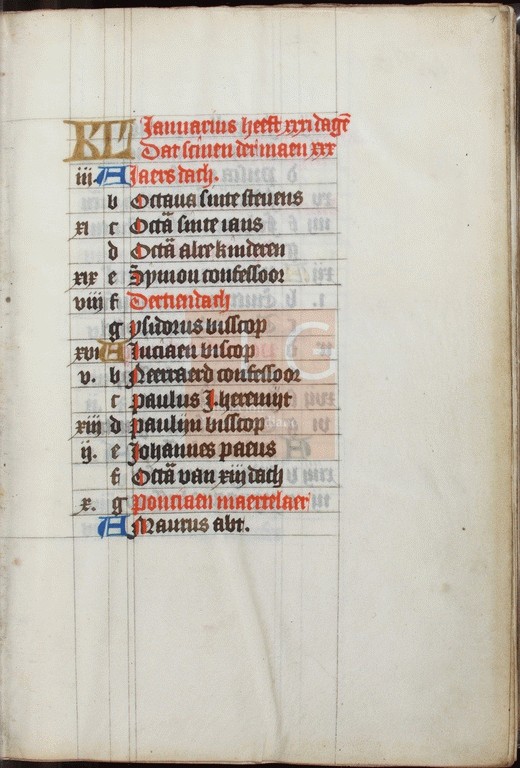 KL Januarius heeft xxxi dagē
Dat scinen der maen xxx
iij. A Jaers dach.
b Octaua sinte steuens
xi c Octā sinte ians
d Octā alre kinderen
xix e Symon confessoor
viij f Dertiendach
g ysidorus bisscop
xvi A luciaen biscop
v. b confessoor
c paulus j. heremijt
xiij d paulijn bisscop
ij. e Johannes paeus
f Octā van xiij dach
x. g Ponciaen maertelaer
A Maurus abt.